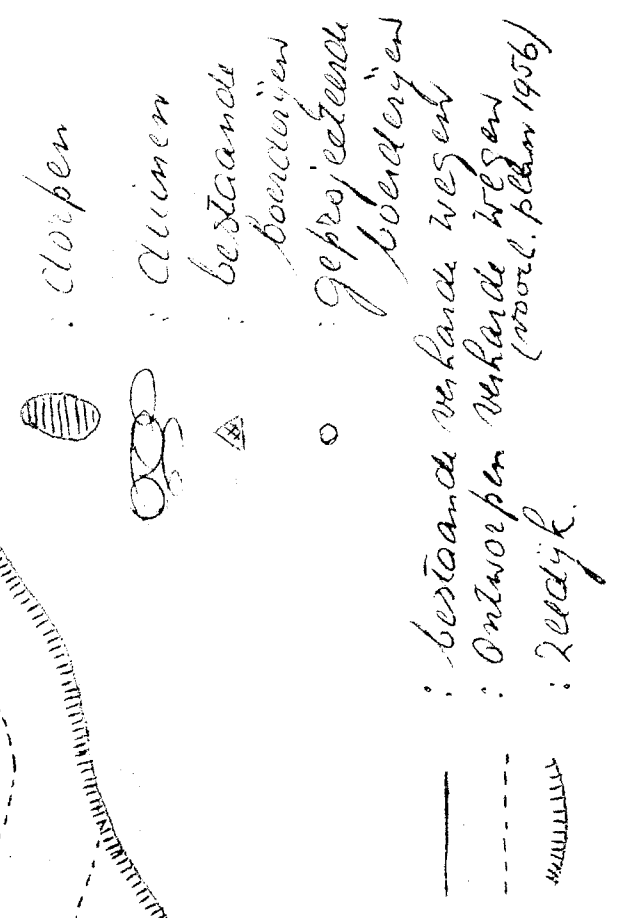 : dorpen
: duinen
: bestaande
boerderijen
: geprojecteerde
boerderijen
: bestaande verharde wegen
: ontworpen verharde wegen
(voorl. plan 1956)
: zeedijk.